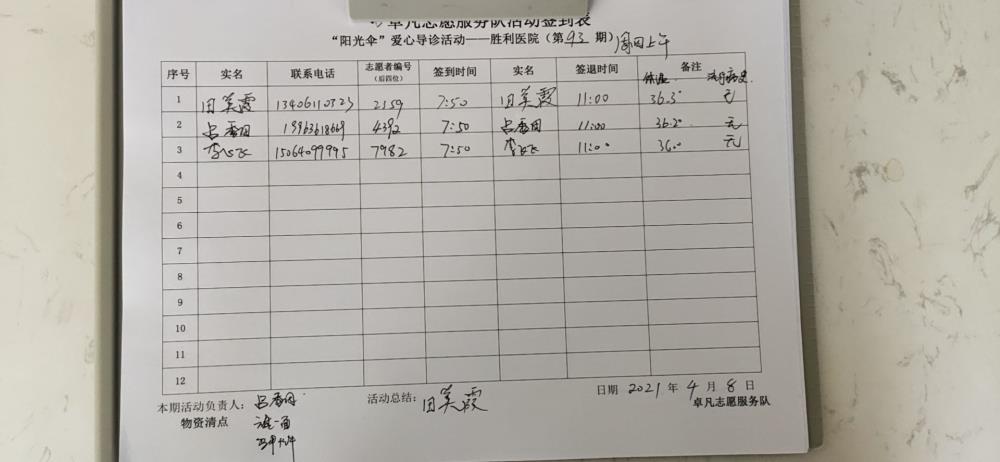 卓凡志愿服务队活动签到表
“阳光伞”爱心导诊活动——胜利医院（第93期）周四上午
序号 实名 联系电话 志愿者编号（后四位） 签到时间 实名 签退时间 备注
体温 流行病史
1 田美霞 13406110323 2159 7:50 田美霞 11:00 36.3° 无
2 吕香田 15963618669 4392 7:50 吕香田 11:00 36.2° 无
3 李飞 15064099995 7982 7:50 李飞 11:00 36.0 无
4
5
6
7
8
9
10
11
12
本期活动负责人： 吕香田 活动总结： 田美霞 日期 2021 年 4 月 8 日
物资清点 卓凡志愿服务队